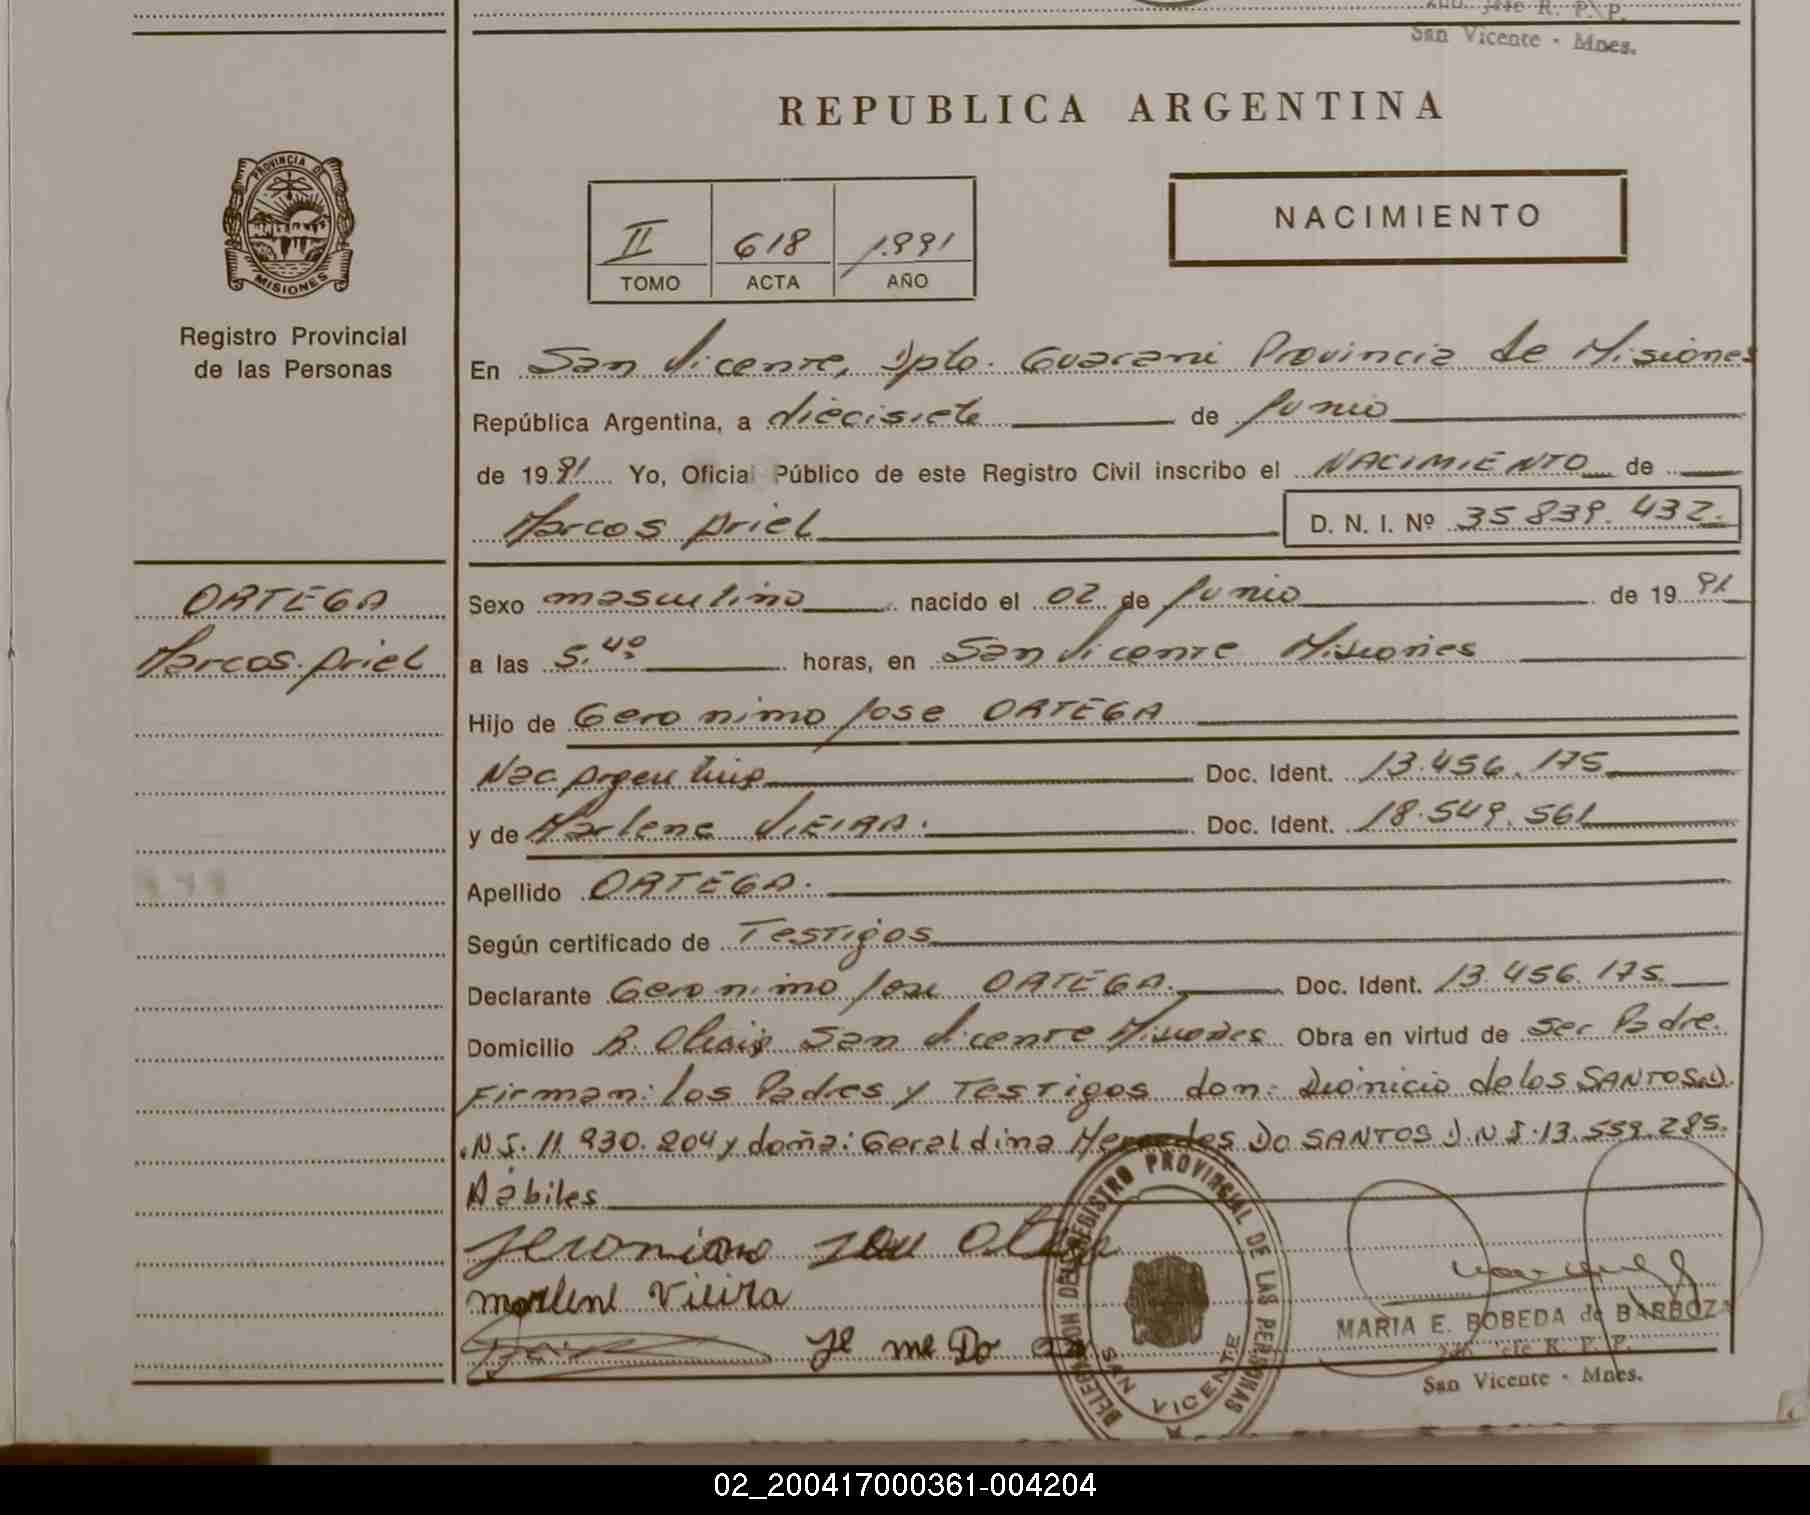 2do. Jefe R. P. P.
San Vicente - Mnes.
REPUBLICA ARGENTINA
PROVINCIA DE
MISIONES
Registro Provincial
de las Personas
II 618 1.991
TOMO ACTA AÑO
NACIMIENTO
En San Vicente, Dpto. Guarani Provincia de Misiones
República Argentina, a diecisiete de Junio
de 1991 Yo, Oficial Público de este Registro Civil inscribo el NACIMIENTO de
Marcos Ariel D. N. I. Nº 35 839. 432.
ORTEGA
Marcos Ariel
Sexo masculino nacido el 02 de Junio de 1991
a las 5.40 horas, en San Vicente Misiones
Hijo de Geronimo Jose ORTEGA
Nac Argentina Doc. Ident. 13.456.175
y de Marlene VIEIRA. Doc. Ident. 18.549.561
Apellido ORTEGA.
Según certificado de Testigos
Declarante Geronimo Jose ORTEGA. Doc. Ident. 13.456.175.
Domicilio B. San Vicente Misiones Obra en virtud de ser Padre.
Firman: los Padres y Testigos don: Dionicio de los SANTOS D.
N I. 11 930. 204 y doña: Geraldina Mercedes Do SANTOS D.N I. 13.559.285.
Habiles
Jeronimo
marlene Vieira
Je me Do
DELEGACION DEL REGISTRO PROVINCIAL DE LAS PERSONAS
SAN VICENTE
MARIA E. BOBEDA de BARBOZA
2do. Jefe R. P. P.
San Vicente - Mnes.
02_200417000361-004204